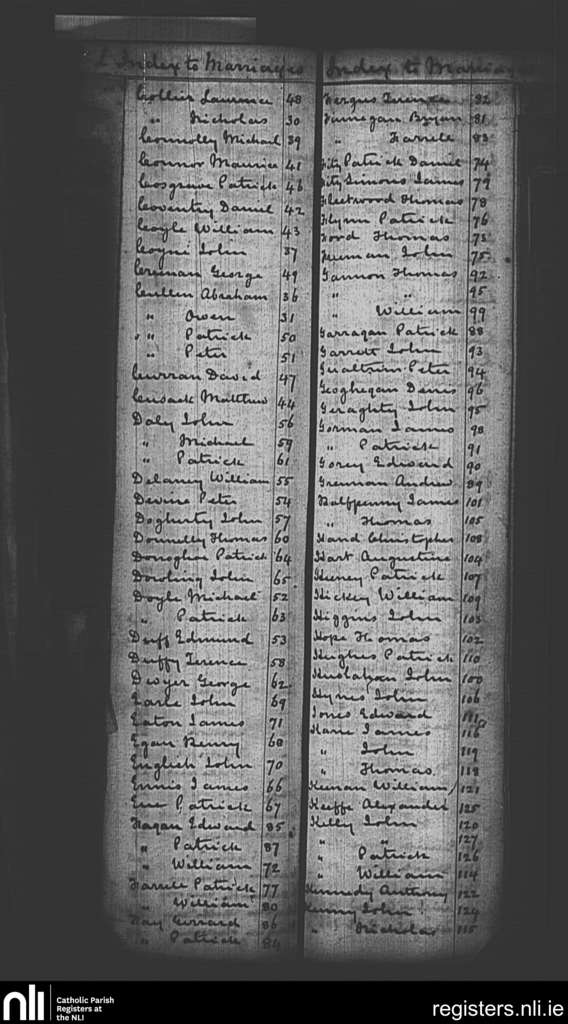 Index to Marriages
Collier Laurence 48
" Nicholas 30
Connolly Michael 39
Connor Maurice 41
Cosgrave Patrick 46
Coventry Daniel 42
Coyle William 43
Coyne John 37
Crennan George 49
Cullen Abraham 36
" Owen 31
" Patrick 50
" Peter 51
Curran David 47
Cusack Matthew 44
Daly John 56
" Michael 59
" Patrick 61
Delaney William 55
Devine Peter 54
Dogherty John 57
Donnelly Thomas 60
Donoghoe Patrick 64
Dowling John 65
Doyle Michael 52
" Patrick 63
Duff Edmund 53
Duffy Terence 58
Dwyer George 62
Earle John 69
Eaton James 71
Egan Henry 68
English John 70
Ennis James 66
Patrick 67
Fagan Edward 85
" Patrick 87
" William 72
Farrell Patrick 77
" William 80
Fay Gerrard 86
" Patrick 84
Index to Marriages
Fergus Terence 82
Finnegan Bryan 81
" Farrell 83
Fitz Patrick Daniel 74
Fitz Simons James 79
Fleetwood Thomas 78
Flynn Patrick 76
Ford Thomas 73
Freeman John 75
Gannon Thomas 92
" " 95
" William 99
Garragan Patrick 88
Garrett John 93
Peter 94
Geoghegan Denis 96
Geraghty John 95
Gorman James 98
" Patrick 91
Gorey Edward 90
Grennan Andrew 89
Halfpenny James 101
" Thomas 105
Hand Christopher 108
Hart Augustine 104
Heeney Patrick 107
Hickey William 109
Higgins John 103
Hope Thomas 102
Hughes Patrick 110
John 100
Hynes John 106
Jones Edward
Kane James 116
" John 119
" Thomas 118
Keenan William 121
Keeffe Alexander 125
Kelly John 120
" " 127
" Patrick 126
" William 114
Kennedy Anthony 122
Kenny John 124
" Nicholas 115
nli
Catholic Parish
Registers at
the NLI
registers.nli.ie